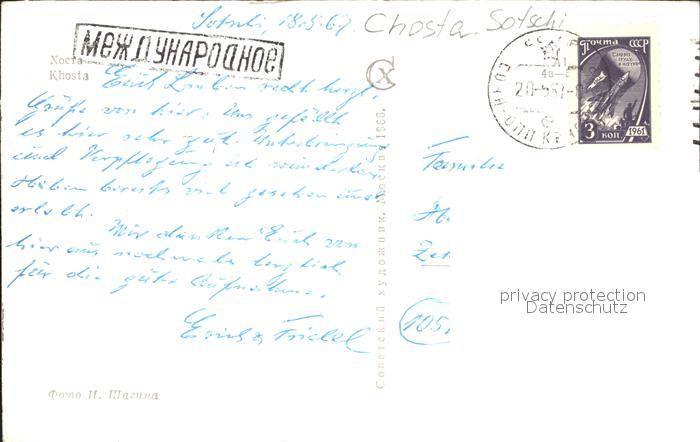 Sotschi, 18.5.67 Chosta Sotschi
МЕЖДУНАРОДНОЕ
Хоста
Khosta
Euch Lieben recht herzl.
Grüße von hier. Uns gefällt
es hier sehr gut. Unterbringung
und Verpflegung ist wunderbar
Haben bereits viel gesehen und
erlebt.
Wir danken Euch von
hier aus nochmals herzlich
für die gute Aufnahme.
Erich
Советский художник. Москва. 1966.
СХ
ПОЧТА СССР
3 КОП
1961
СССР
20-5
СОЧИ
Familie
(105
privacy protection
Datenschutz
Фото И. Шагина